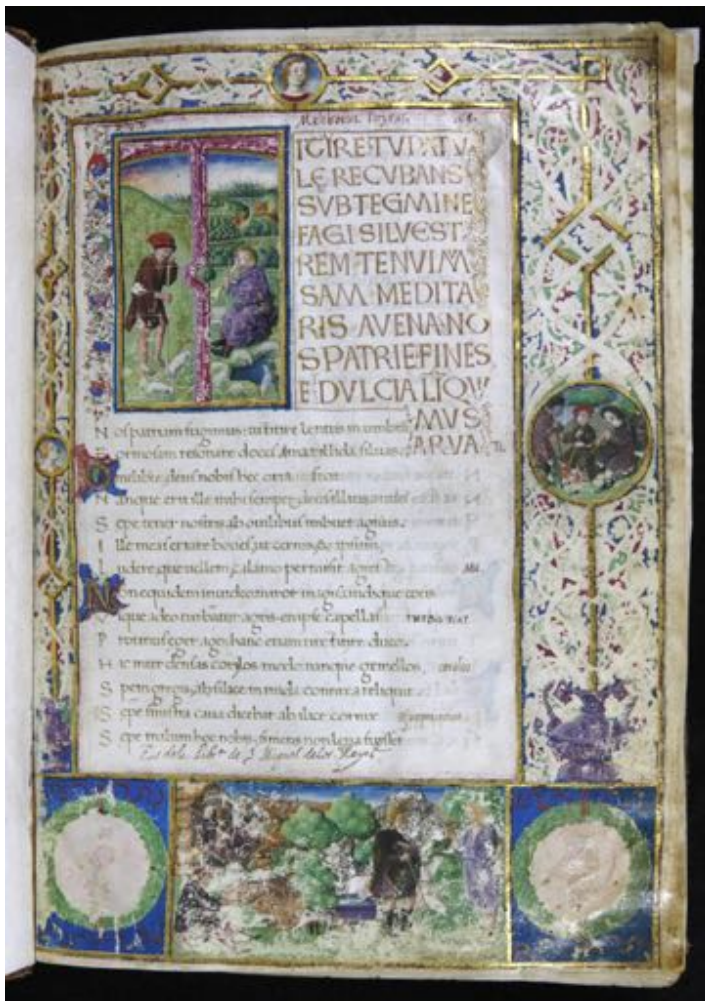 Meliboeus Tityrus
ICIRE·TV·PATV
LE RECVBANS
SVB TEGMINE
FAGI SILVEST
REM·TENVI·M
SAM·MEDITA
RIS AVENA·NO
S PATRIE·FINES
E·DVLCIA LĪQV
MVS
ARVA
Nos patriam fugimus tu titire lentus in umbra
Formosam resonare doces Amarillida siluas
O melibee deus nobis hec otia fecit
Nanque erit ille mihi semper deus illius aram
Sepe tener nostris ab ouilibus imbuet agnus
Ille meas errare boues ut cernis & ipsum
Ludere que uellem calamo permisit agresti
Non equidem inuideo miror magis undique totis
Vsque adeo turbatur agris en ipse capellas
Protinus eger ago hanc etiam uix titire duco
Hic inter densas corilos modo nanque gemellos
Spem gregis ab silice in nuda connixa reliquit
Sepe sinistra caua dicebat ab ilice cornix
Sepe malum hoc nobis si mens non leua fuisset
Es de la Libª de D. Miguel de los Reyes